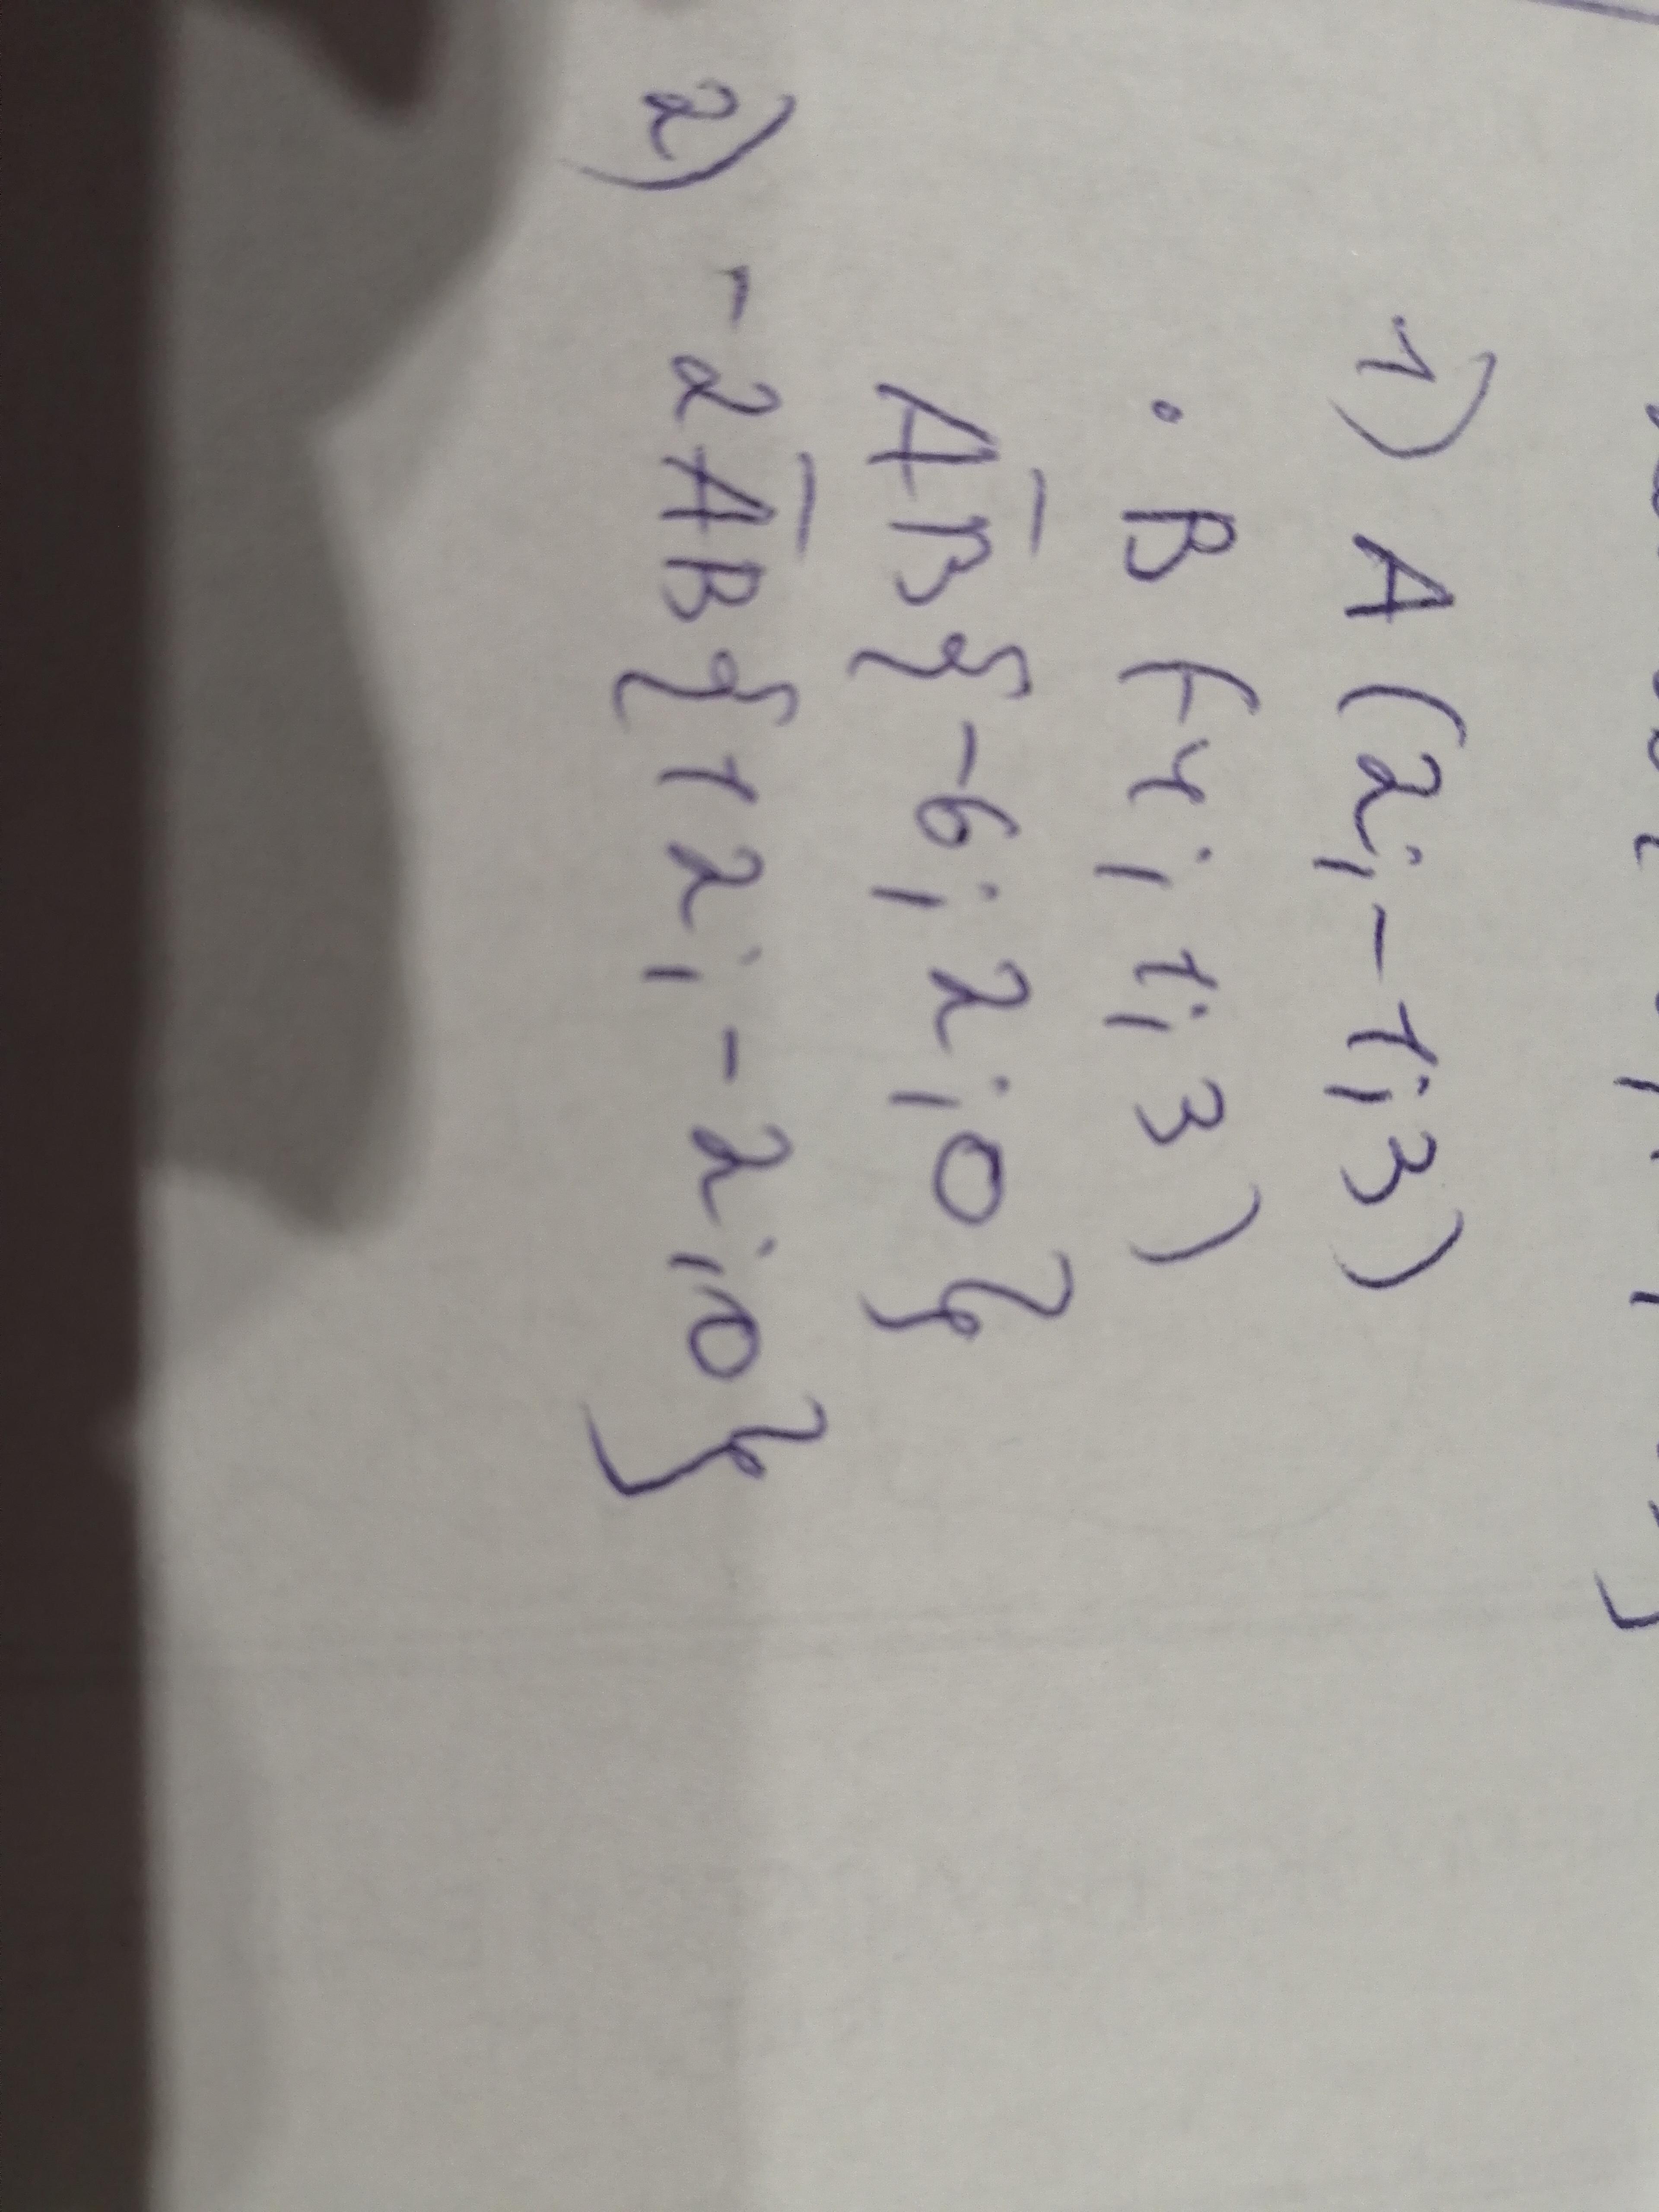 1) A (2; -1; 3)
. B (-4; 1; 3)
AB {-6; 2; 0}
2) -2AB {12; -2; 0}